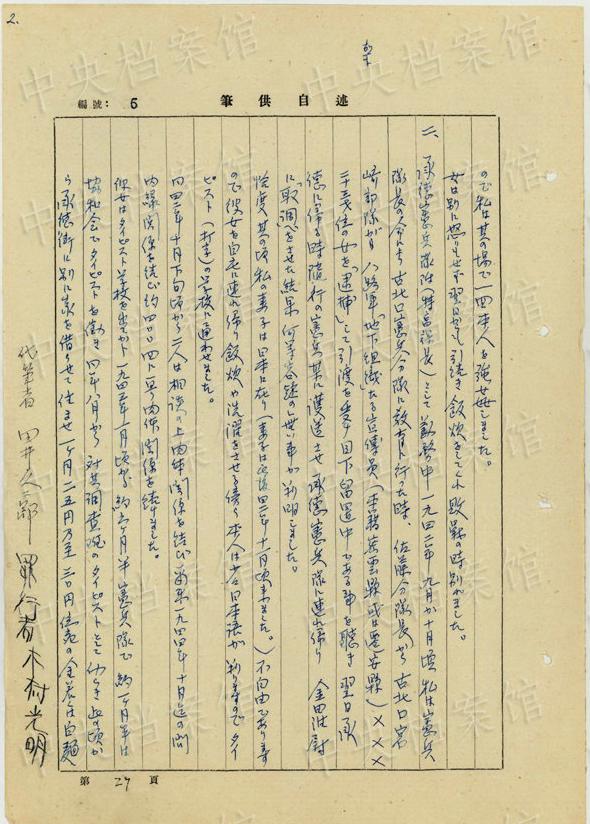 2.
編號： 6
筆供自述
ので私は其の場で一回本人を強姦しました。
女は別に怒りもせず翌日からも引続き飯炊をしてくれ敗戦の時別れました。
二、承徳憲兵隊附（特高課長）として勤務中一九四二年九月か十月頃私は憲兵
隊長の命により古北口憲兵分隊に教育に行った時、佐藤分隊長から古北口宮
崎部隊が八路軍「地下組織」たる宣伝員（密雲縣或は遷安縣）×××
二十三才位の女を「逮捕」して引渡を受け目下留置中である事を聴き翌日承
徳に帰る時随行の憲兵某に護送させ承徳憲兵隊に連れ帰り
に「取調」をさせた結果何等
恰度其の頃私の妻子は日本に在り（妻子は 四二年十一月頃来ました。）不自由であります
ので彼女を自宅に連れ帰り飯炊や洗濯をさせる傍ら本人は少し日本語が判りますのでタイ
ピスト（打字）の学校に通わせました。
四二年十月下旬頃から二人は相談の上肉体関係を結び爾来一九四四年十月迄の間
内縁関係を続け約 肉体関係を続けました。
彼女はタイピスト学校を出てから一九四三年一月頃から約六ヶ月半憲兵隊で、約一ヶ月半は
協和会でタイピストを働き四三年八月から 調査班のタイピストとして働き 此の頃か
ら承徳街に別に家を借りさせて住ませ一ヶ月二五円乃至三〇円位宛の金 白麺
代筆者 田井久二郎 罪行者 木村光明
第 27 頁
中央档案馆